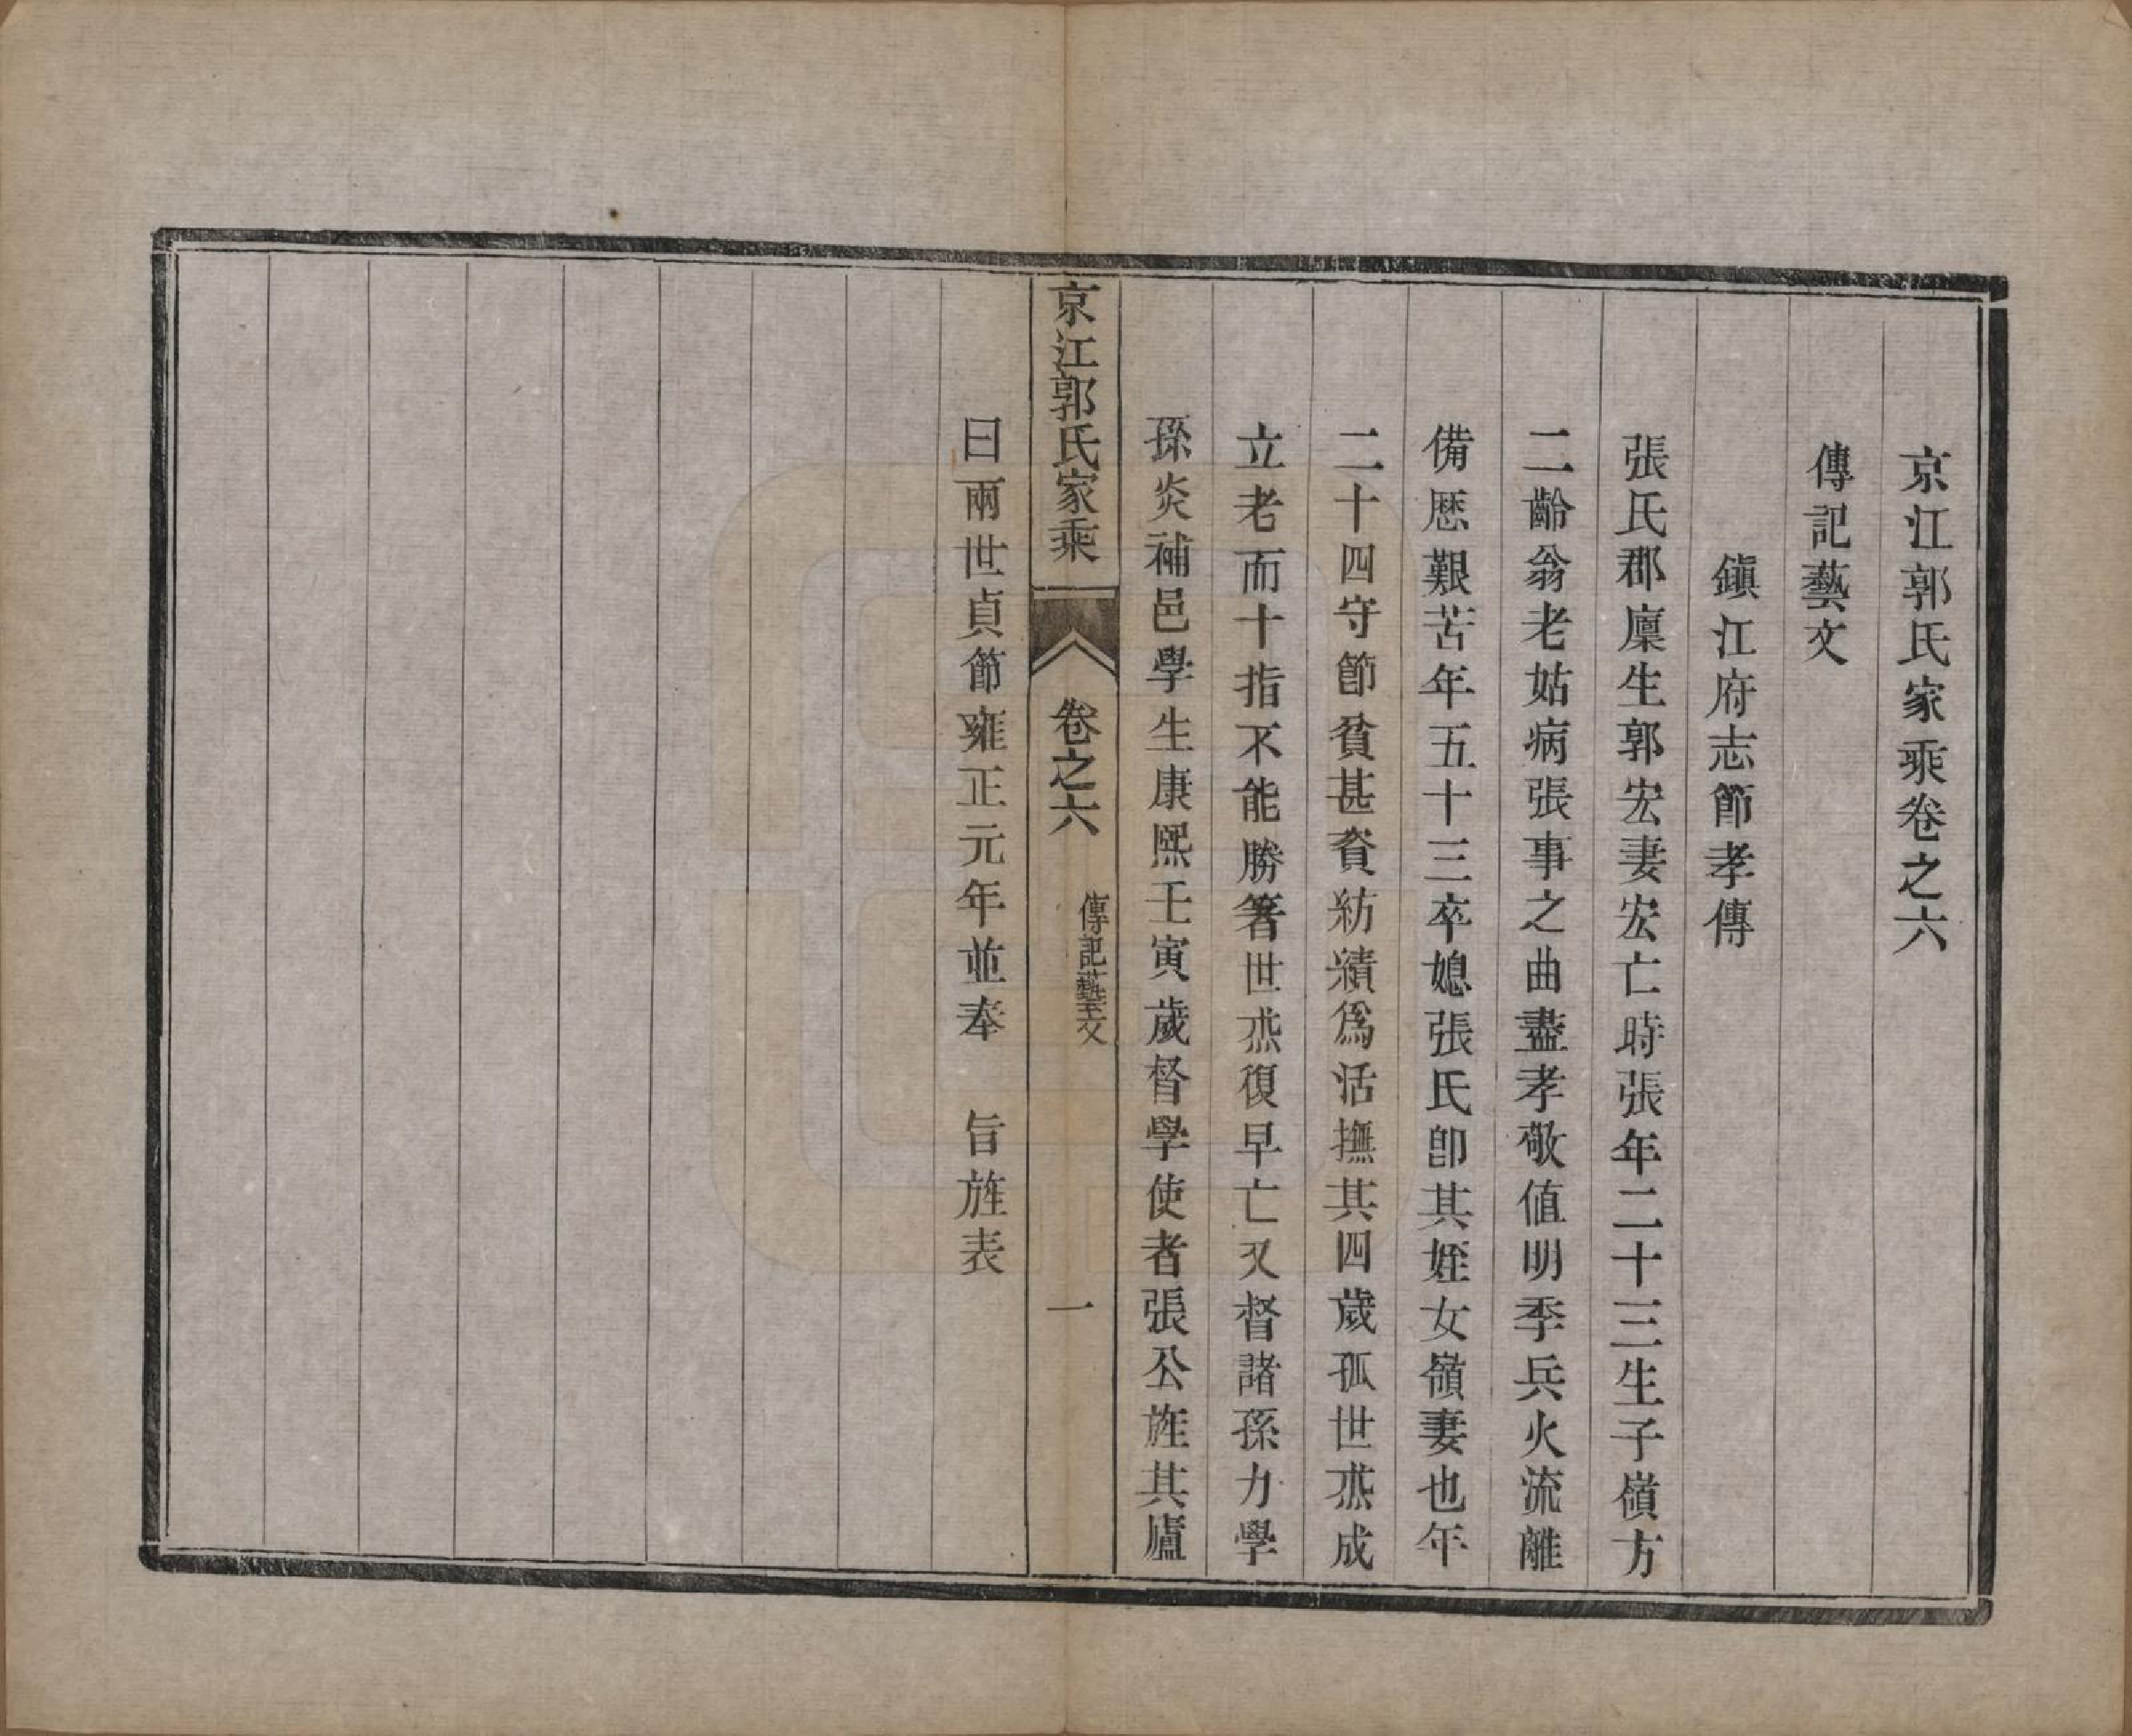 京江郭氏家乘卷之六
傳記藝文
鎭江府志節孝傳
張氏郡廩生郭宏妻宏亡時張年二十三生子嶺方
二齡翁老姑病張事之曲盡孝敬值明季兵火流離
備歷艱苦年五十三卒媳張氏卽其姪女嶺妻也年
二十四守節貧甚資紡績爲活撫其四歲孤世燕成
立老而十指不能勝箸世燕復早亡又督諸孫力學
孫炎補邑學生康熙壬寅歲督學使者張公旌其廬
京江郭氏家乘 卷之六 傳記藝文 一
曰兩世貞節雍正元年並奉 旨旌表